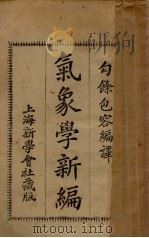 勾餘包容編譯
氣象學新編
上海新學會社藏版